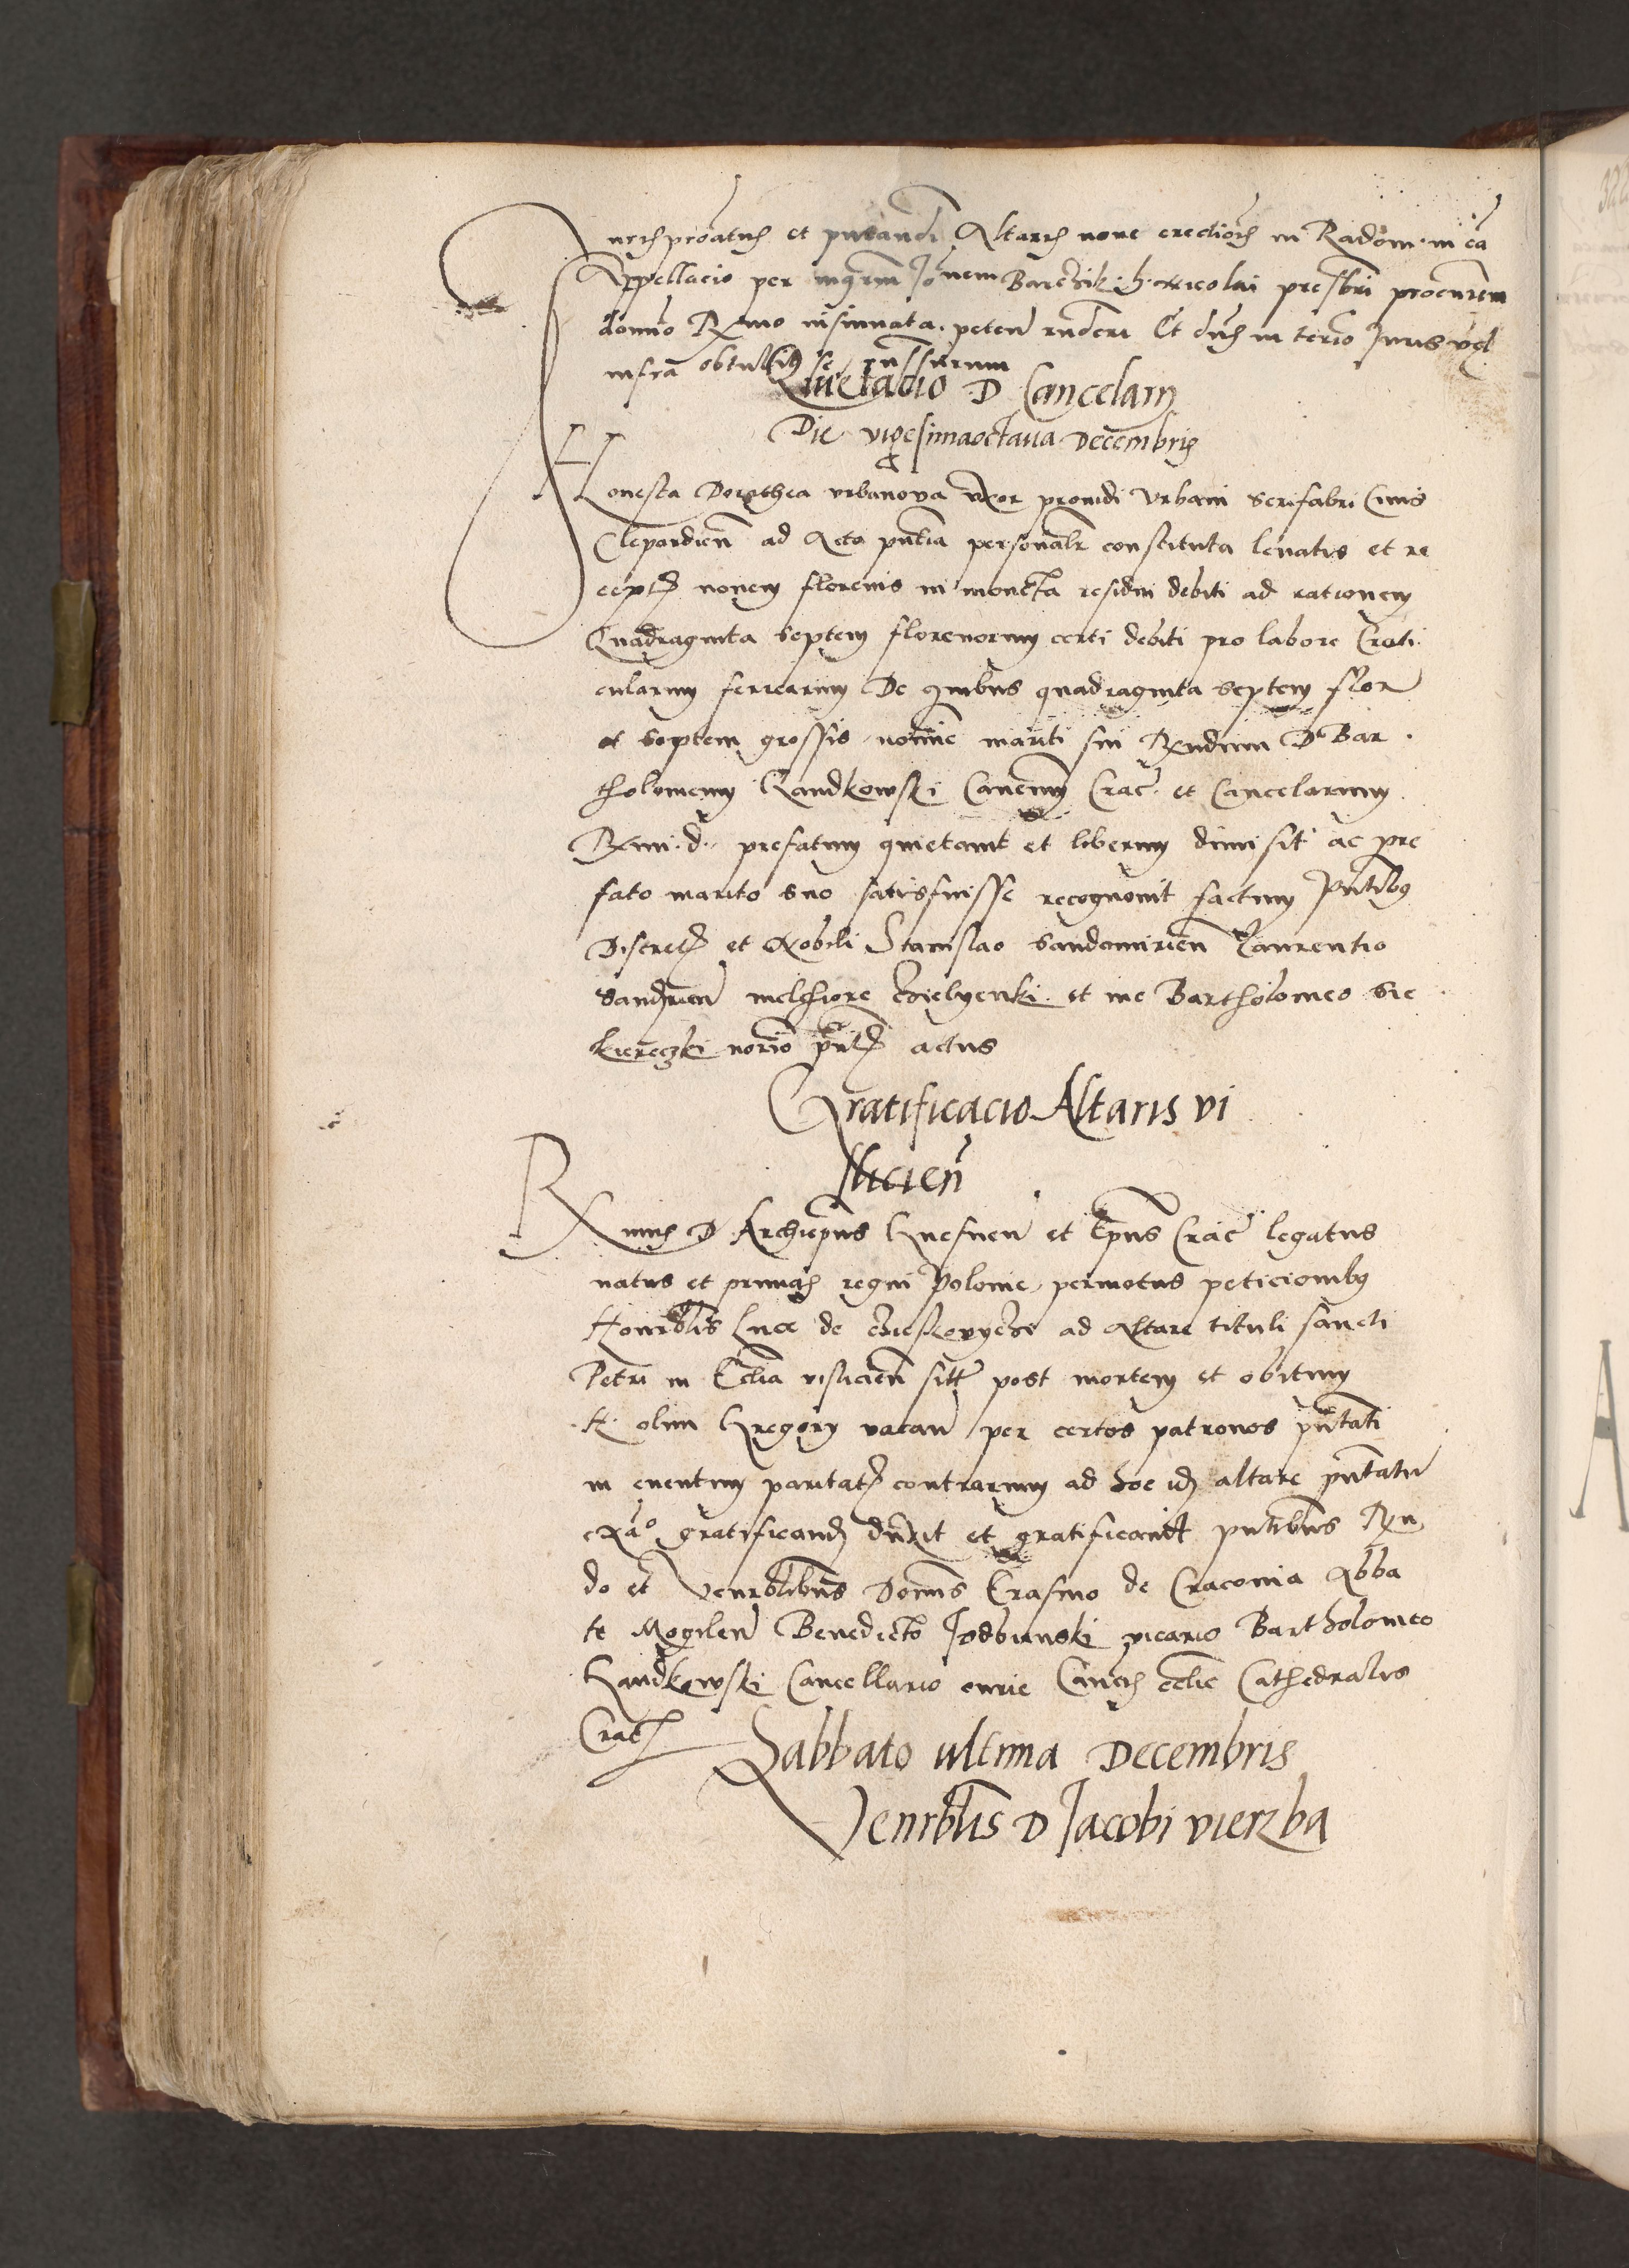 Jurispronatus et pntandi Altaris nove erectionis in Radom. in ca
Appellacio per mgrm Joannem Barczik h. Nicolai presbri procurem
domino Rxmo insinuata. peten rnderi Et dns in termo Juris vel
infra obtulit se rnssurum
Quietacio D Cancelarij
Die vigesimaoctaua Decembris
Honesta Dorothea vrbanova vxor prouidi Vrbani serifabri Ciuis
Clepardien ad Acta pntia personalr constituta leuatis et re
ceptis nouem florenis in moneta residui debiti ad rationem
Quadraginta septem florenorum certi debiti pro labore Crati
cularum ferrearum De quibus quadraginta septem flor
et septem grossis nomine mariti sui Rxndum D Bar
tholomeum Gandkowski Canonicum Crac. et Cancelarium
Rxmi. d. prefatum quietauit et liberum dimisit ac pre
fato marito suo satisfuisse recognouit factum Pntibus
Discretis et Nobili Stanislao Sandomirien Laurentio
Sandomirien melchiore Czielyenski et me Bartholomeo Sie
kierczki notrio pntis actus
Gratificacio Altaris vi
slicien
Rxmus D Archiepus Gnesnen et Epus Crac legatus
natus et primas regni Polonie permotus peticionibus
Honrblis Luce de ad Altare tituli sancti
Petri in Ecclia vislicien sitt post mortem et obitum
H. olim Gregorij vacan per certos patronos pntati
in euentum paritatis contrarium ad hoc id altare pntatu
gratificand duxit et gratificauit pntibus Rxn
do et Venrblibus Dominis Erasmo de Craconia Abba
te Mogilen Benedicto Isdbienski vicario Bartholomeo
Gandkowski Cancellario curie Canocis ecclie Cathedralis
Crac
Sabbato vltima Decembris
Venrblis D Jacobi vierzba